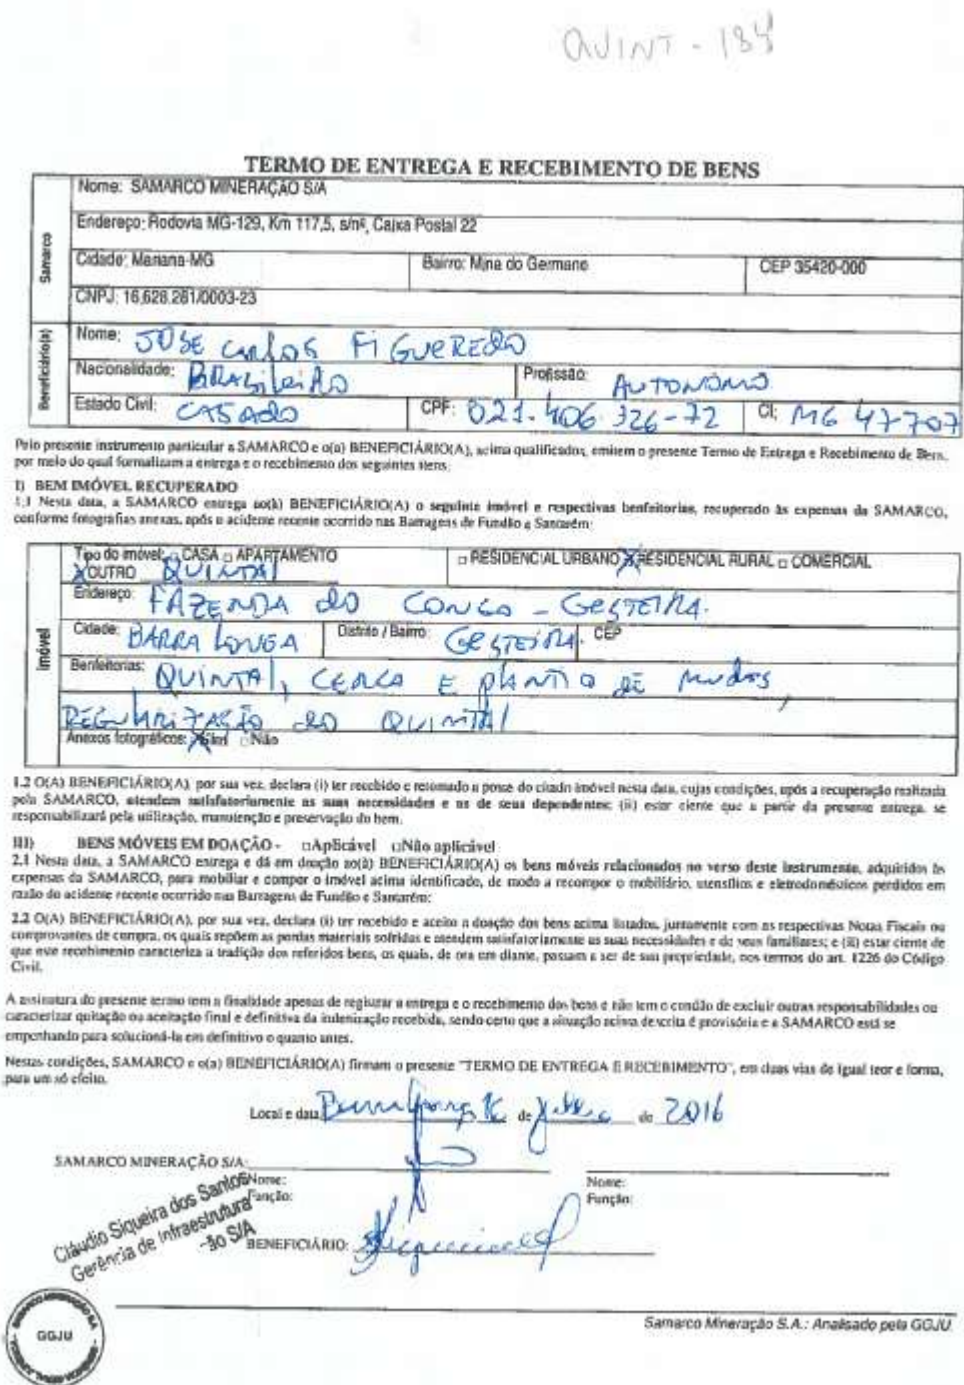 QUINT - 184
TERMO DE ENTREGA E RECEBIMENTO DE BENS
Samarco
Nome: SAMARCO MINERAÇÃO S/A
Endereço: Rodovia MG-129, Km 117,5, s/nº, Caixa Postal 22
Cidade: Mariana-MG Bairro: Mina do Germano CEP 35420-000
CNPJ: 16.628.281/0003-23
Beneficiário(a)
Nome: JOSE CARLOS FIGUEREDO
Nacionalidade: BRASILEIRO Profissão: AUTONOMO
Estado Civil: CASADO CPF: 021.406.326-72 CI: MG 47707
Pelo presente instrumento particular a SAMARCO e o(a) BENEFICIÁRIO(A), acima qualificados, emitem o presente Termo de Entrega e Recebimento de Bens,
por meio do qual formalizam a entrega e o recebimento dos seguintes itens:
I) BEM IMÓVEL RECUPERADO
1.1 Nesta data, a SAMARCO entrega ao(à) BENEFICIÁRIO(A) o seguinte imóvel e respectivas benfeitorias, recuperado às expensas da SAMARCO,
conforme fotografias anexas, após o acidente recente ocorrido nas Barragens de Fundão e Santarém:
Imóvel
Tipo do imóvel: □ CASA □ APARTAMENTO □ RESIDENCIAL URBANO X RESIDENCIAL RURAL □ COMERCIAL
X OUTRO QUINTAL
Endereço: FAZENDA DO CONGO - GESTEIRA.
Cidade: BARRA LONGA Distrito / Bairro: GESTEIRA. CEP
Benfeitorias: QUINTAL, CERCA E PLANTIO DE MUDAS,
REGULARIZAÇÃO DO QUINTAL
Anexos fotográficos: X Sim □ Não
1.2 O(A) BENEFICIÁRIO(A), por sua vez, declara (i) ter recebido e retomado a posse do citado imóvel nesta data, cujas condições, após a recuperação realizada
pela SAMARCO, atendem satisfatoriamente as suas necessidades e as de seus dependentes; (ii) estar ciente que a partir da presente entrega, se
responsabilizará pela utilização, manutenção e preservação do bem.
III) BENS MÓVEIS EM DOAÇÃO - □Aplicável □Não aplicável
2.1 Nesta data, a SAMARCO entrega e dá em doação ao(à) BENEFICIÁRIO(A) os bens móveis relacionados no verso deste instrumento, adquiridos às
expensas da SAMARCO, para mobiliar e compor o imóvel acima identificado, de modo a recompor o mobiliário, utensílios e eletrodomésticos perdidos em
razão do acidente recente ocorrido nas Barragens de Fundão e Santarém;
2.2 O(A) BENEFICIÁRIO(A), por sua vez, declara (i) ter recebido e aceito a doação dos bens acima listados, juntamente com as respectivas Notas Fiscais ou
comprovantes de compra, os quais repõem as perdas materiais sofridas e atendem satisfatoriamente as suas necessidades e de seus familiares; e (ii) estar ciente de
que este recebimento caracteriza a tradição dos referidos bens, os quais, de ora em diante, passam a ser de sua propriedade, nos termos do art. 1226 do Código
Civil.
A assinatura do presente termo tem a finalidade apenas de registrar a entrega e o recebimento dos bens e não tem o condão de excluir outras responsabilidades ou
caracterizar quitação ou aceitação final e definitiva da indenização recebida, sendo certo que a situação acima descrita é provisória e a SAMARCO está se
empenhando para solucioná-la em definitivo o quanto antes.
Nestas condições, SAMARCO e o(a) BENEFICIÁRIO(A) firmam o presente "TERMO DE ENTREGA E RECEBIMENTO", em duas vias de igual teor e forma,
para um só efeito.
Local e data Barra Longa de de 2016
SAMARCO MINERAÇÃO S/A:
Nome: Nome:
Função: Função:
Cláudio Siqueira dos Santos
Gerência de Infraestrutura
-ão S/A
BENEFICIÁRIO:
GGJU
Samarco Mineração S.A.: Analisado pela GGJU